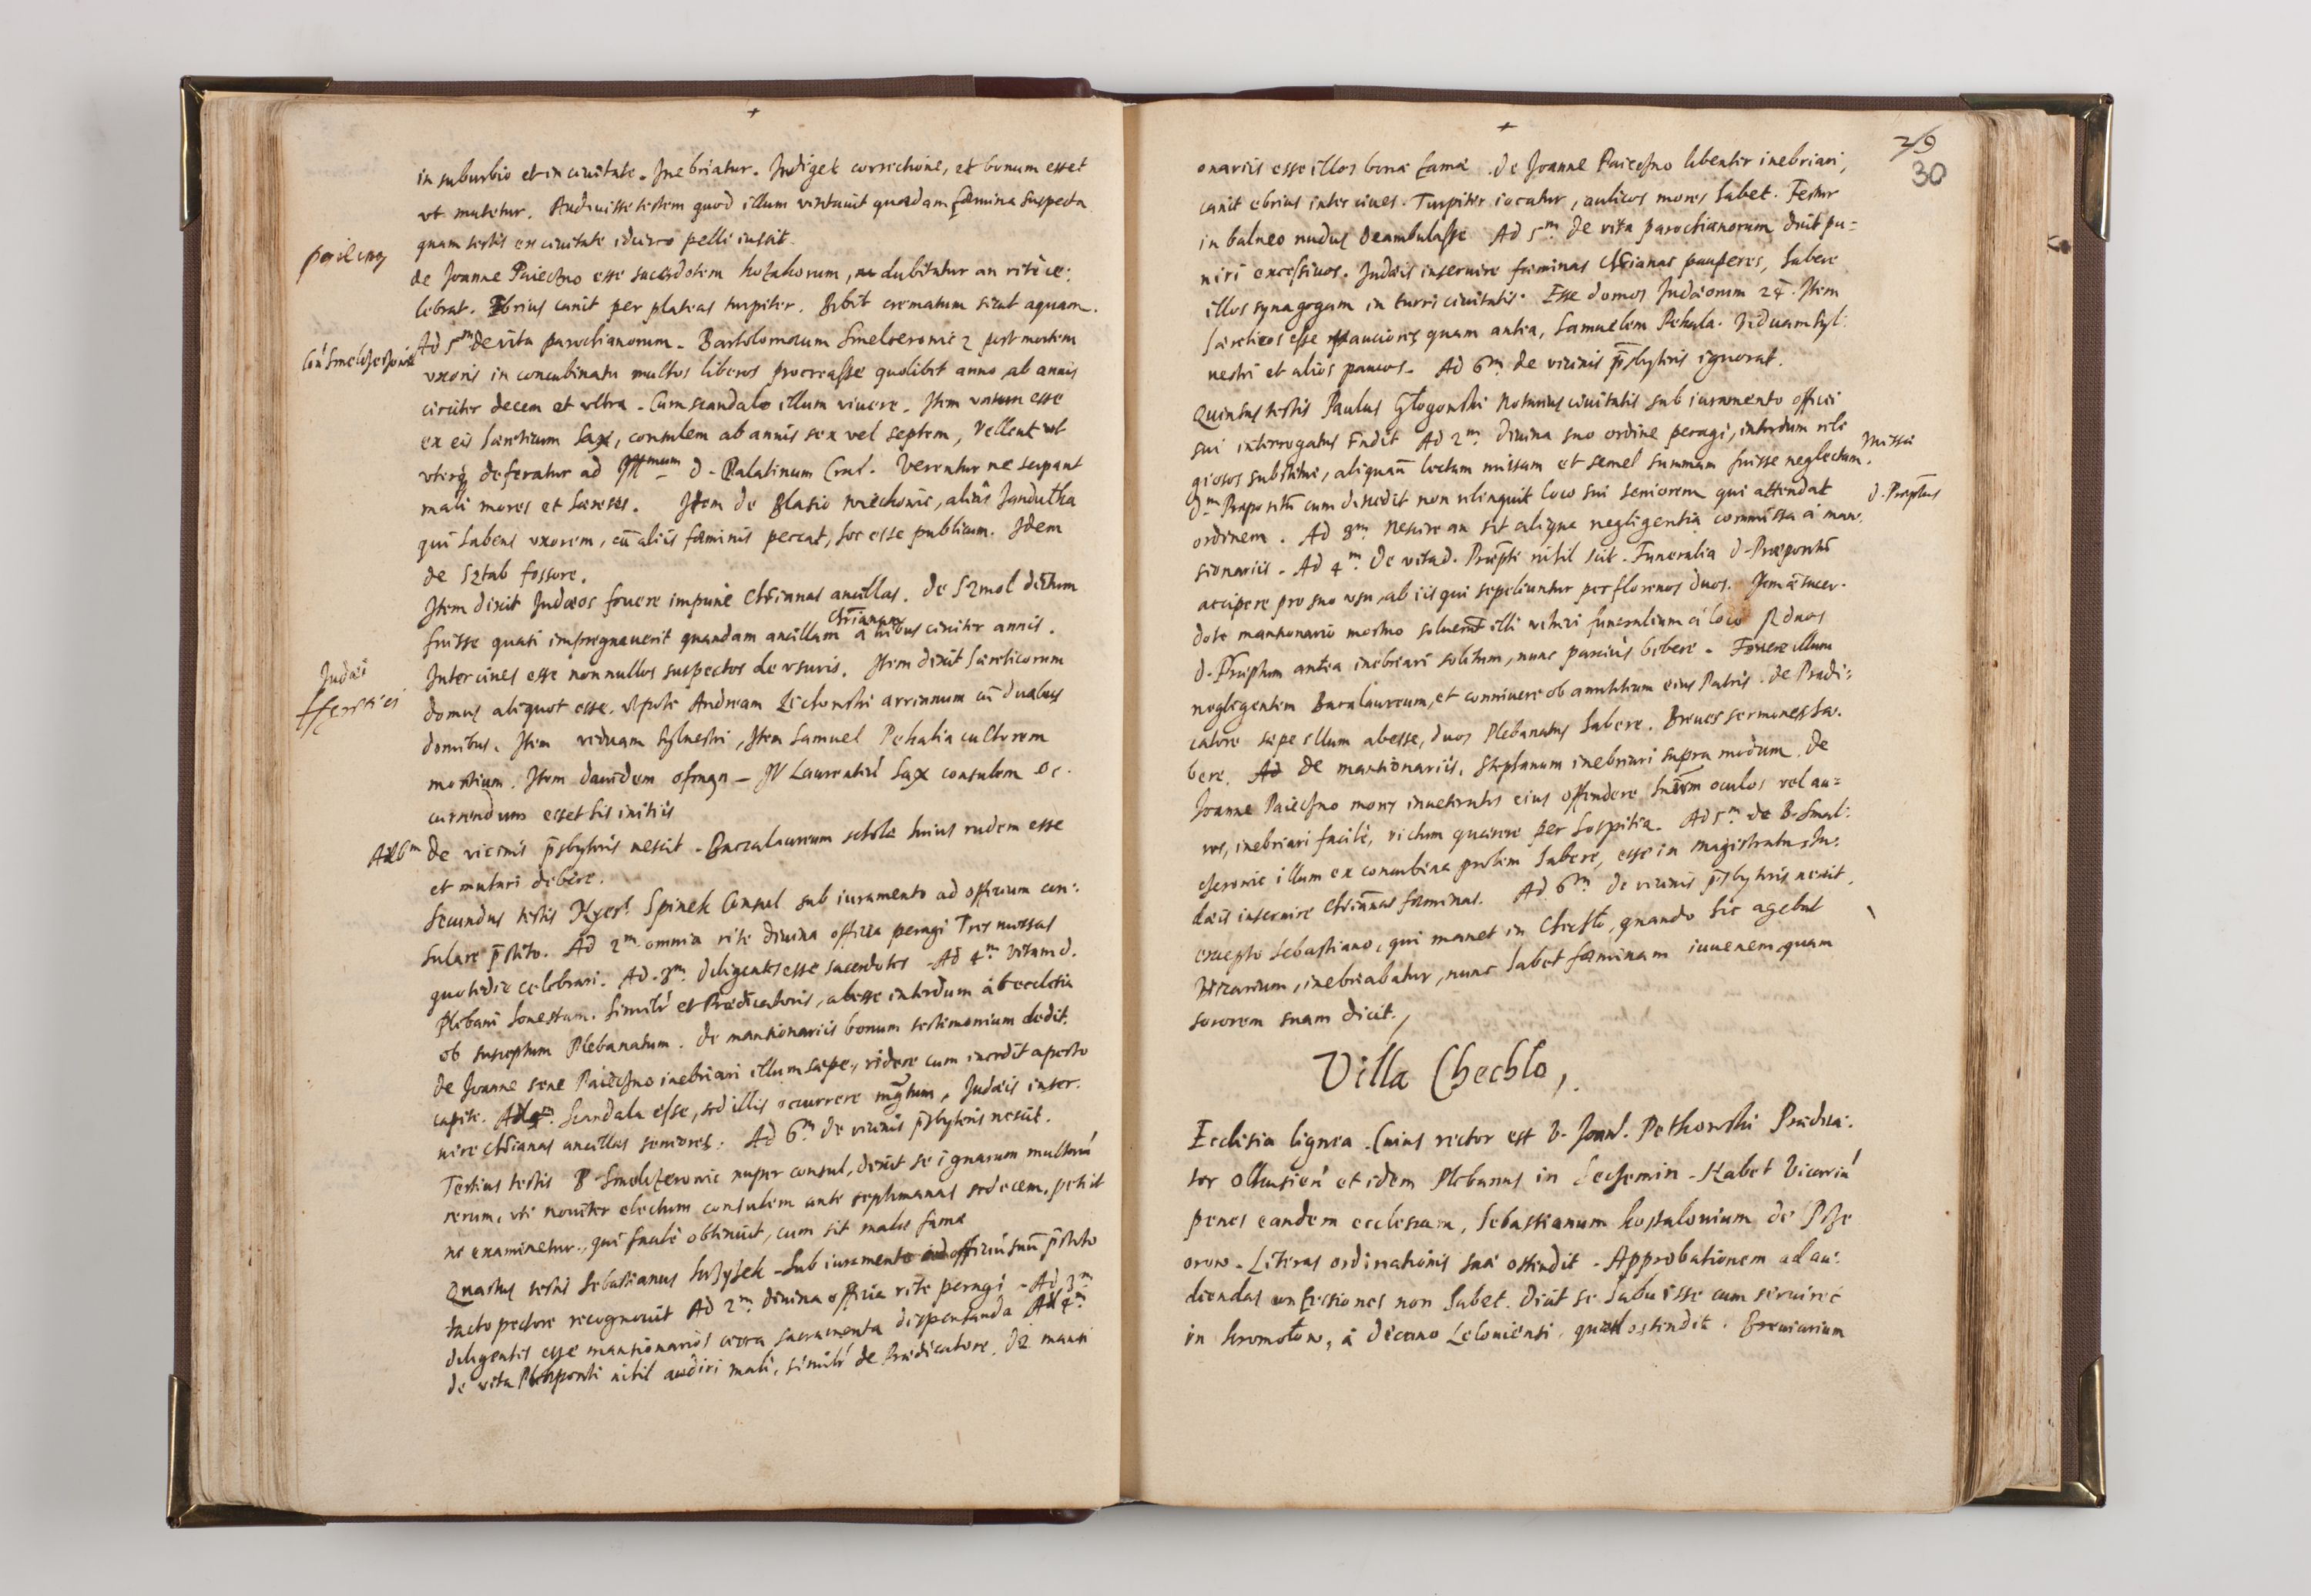 +
in suburbio et in ciuitate. Inebriatur. Indiget correctione, et bonum esset
vt mutetur. Audiuisse testem quod illum visitauit quaedam faemina suspecta
quam testis ex ciuitate idcirco pelli iussit.
de Joanne Paiechno esse sacerdotem, dubitatur an ritè ce:
lebrat. Ebrius canit per plateas turpiter. Bibit crematum sicut aquam.
Ad 5m de vita parochianorum. Bartolomaeum Smelceronic 2 post mortem
vxoris in concubinatu multos liberos procreasse quolibet anno ab annis
circiter decem et vltra. Cum scandalo illum viuere. Item vnum esse
ex eis haereticum Sax, consulem ab annis sex vel septem, Vellent vt
vterq deferatur ad Illmum D. Palatinum Crac. Verentur ne serpant
mali mores et haereses. Item de Blasio Wiechowic, aliàs Jandutka
qui habens vxorem, cū aliis faeminis peccat, hoc esse publicum. Idem
de Sztab fossore.
Item dixit Judaeos fouere impunè Chrianas ancillas. De Szmol dictum
fuisse quasi impregnauerit quandam ancillam Chrianam a tribus circiter annis.
Inter ciues esse nonnullos suspectos de vsuris. Item dixit haereticorum
Judaei
domus aliquot esse. vtpote Andream arrianum cū duabus
domibus. Item viduam Syluestri, Item Samuel Pehalia cultorem
montium. Item dauidem - It Laurentiū Sax consulem
currendum esset his initiis
Ad 6m De vicinis pr̄sbyteris nescit. Baccalaureum scholae huius rudem esse
et mutari debere.
Secundus testis Spinek Consul sub iuramento ad officium con:
sulare pr̄stito. Ad 2m omnia rite diuina officia peragi Tres missas
quotidie celebrari. Ad 3m diligentes esse sacerdotes. Ad 4m vitam d.
Plebani honestam. Similr et Praedicatoris, abesse interdum ab ecclesia
ob susceptum Plebanatum. De mansionariis bonum testimonium dedit.
de Joanne sene Paiechno inebriari illum saepe, ridere cum incedit aperto
capite. Ad 5m Scandala esse, sed illis occurrere mgr̄tum, Judaeis inser:
uire Chrianas ancillas seniores. Ad 6m de vicinis pr̄sbyteris nescit.
Tertius testis B Smelczeronic nuper consul, dixit se ignarum multarū
rerum, vti nouiter electum consulem ante septimanas sedecem. petiit
ne examinetur, qui facilè obtinuit, cum sit malae famae
Quartus testis Sebastianus - Sub iuramento ad officiū suū pr̄stito
tacto pectore recognouit Ad 2m diuina officia rite peragi - Ad 3m
diligentes esse mansionarios circa sacramenta dispensanda Ad 4m
de vita Praepositi nihil audiri mali, similr de Praedicatore. De mansi
+
29
30
onariis esse illos bonae famae. de Joanne Paiechno libenter inebriari,
canit ebrius inter ciues. Turpiter iocatur, aulicos mores habet. Fertur
in balneo nudus deambulasse Ad 5m de vita parochianorum dixit pu=
niri excessiuos. Judaeis inseruire faeminas Chrianas pauperes, habere
illos synagogam in turri ciuitatis. Esse domos Judaeorum 24. Item
haereticos esse pauciores quam antea, Samuelem Pehala. Viduam Syl:
uestri et alios paucos. Ad 6m de vicinis pr̄sbyteris ignorat.
Quintus testis Paulus Głogowski Notarius ciuitatis sub iuramento officii
sui interrogatus Ad 2m diuina suo ordine peragi, interdum reli
Missa
giosos substitui, aliquam̄ lectam missam et semel summam fuisse neglectam.
d. Praep̄tus
Dm̄ Praepositū cum discedit non relinquit loco sui seniorem qui attendat
ordinem. Ad 3m Nescire an sit aliqua negligentia commissa a man
sionariis. Ad 4m De vita d. Praep̄ti nihil scit. Funeralia d. Praepositū
accipere pro suo vsu, ab iis qui sepeliuntur per florenos duos. Item à sacer:
dote mansionario mortuo
d. Praep̄tum antea inebriari solitum, nunc parciùs bibere. Fouere illum
neglegentem Baccalaureum, et conniuere ob amicitiam eius Patris. de Praedi:
catore saepe illum abesse, duos Plebanatus habere. Breues sermones ha:
bere. Ad De mansionariis, Stephanum inebriari supra modum. De
Joanne Paiechno mores inueteratos eius offendere oculos vel au=
res, inebriari facilè, victum quaerere per hospitia. Ad 5m de B. Smel:
cheronic illum ex concubina prolem habere, esse in magistratu, Ju:
daeis inseruire Chriānas faeminas. Ad 6m de vicinis pr̄sbyteris nescit,
excepto Sebastiano, qui manet in Chechło, quando hic agebat
Vicarium, inebriabatur, nunc habet faeminam iuuenem, quam
sororem suam dicit.
Villa Chechło,
Ecclesia lignea. Cuius rector est V. Joan. Petkowski Praedica:
tor Olkusien̄ et idem Plebanus in. Habet Vicariū
penes eandem ecclesiam, Sebastianum de
orow. Literas ordinationis suae ostendit. Approbationem ad au:
diendas confessiones non habet. Dicit se habuisse cum seruiret
in kromołow, à decano Leloviensi, quam ostendit. Breuiarium